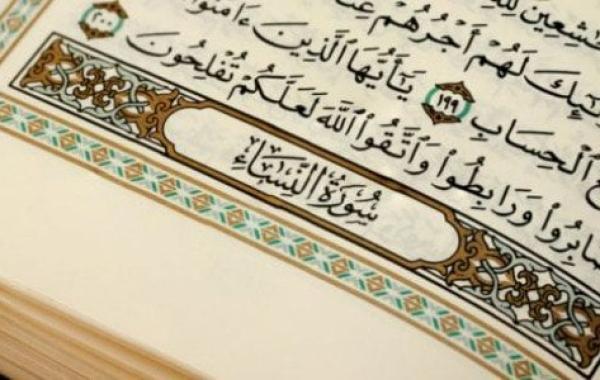 ـشِعِينَ لِلَّهِ
ـئِكَ لَهُمْ أَجْرُهُمْ عِنـ
ٱلْحِسَابِ ١٩٩ يَٰٓأَيُّهَا ٱلَّذِينَ ءَامَنُوا۟
ـابِرُوا۟ وَرَابِطُوا۟ وَٱتَّقُوا۟ ٱللَّهَ لَعَلَّكُمْ تُفْلِحُونَ ٢٠٠
سُورَةُ النِّسَاءِ